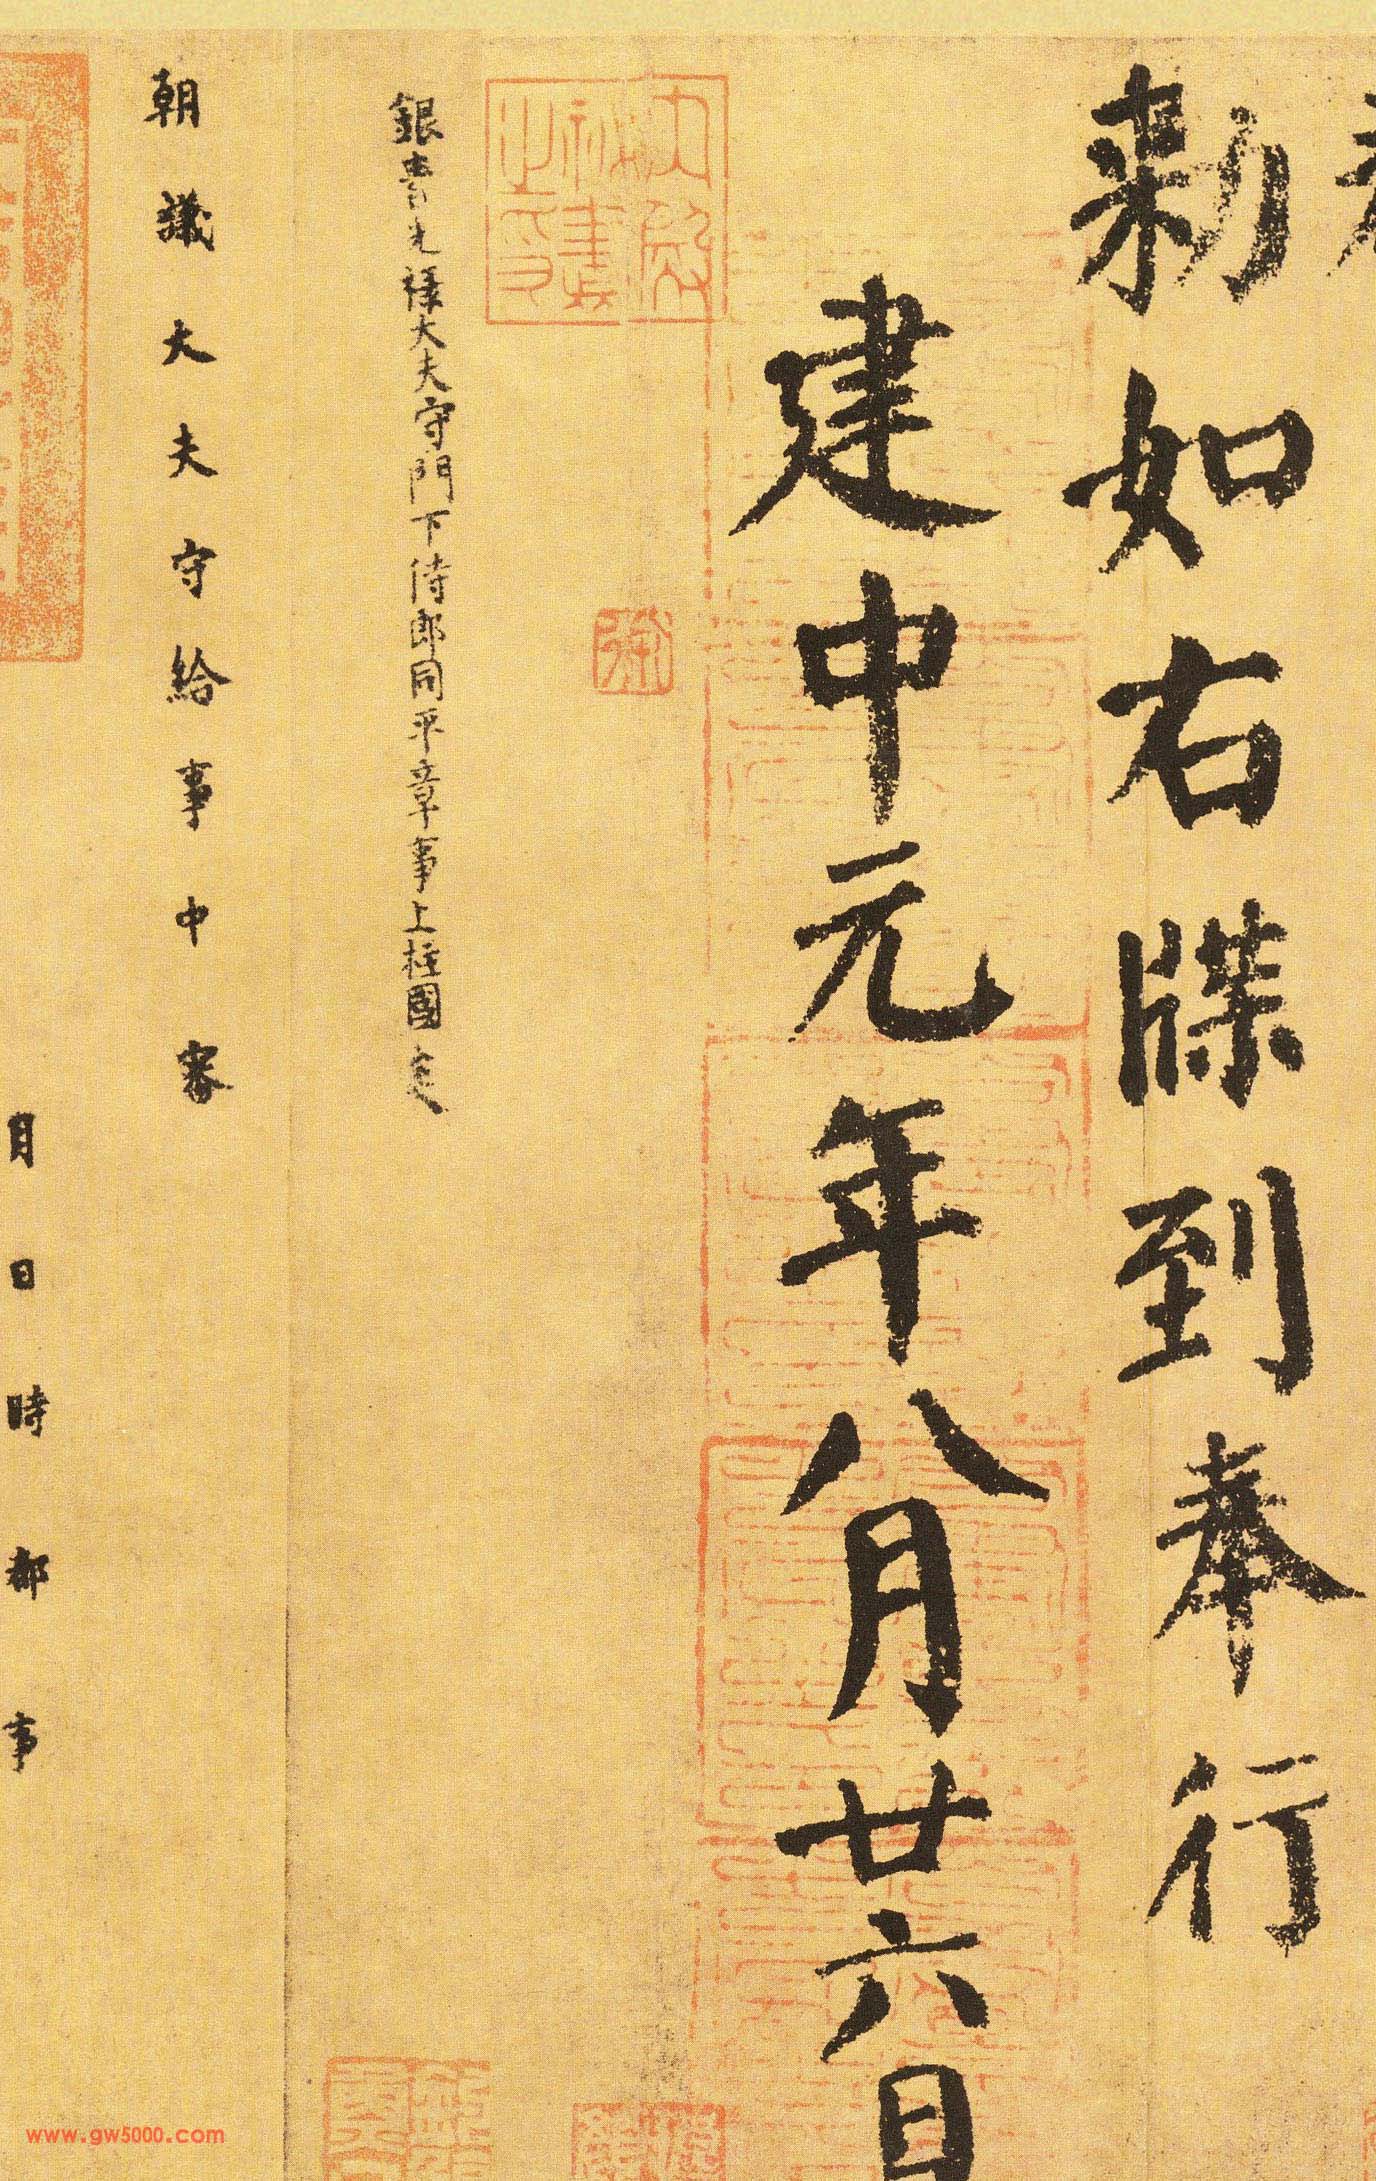 勑如右牒到奉行
建中元年八月廿六日
銀青光祿大夫守門下侍郎同平章事上柱國
朝議大夫守給事中審
月日時都事
www.gw5000.com